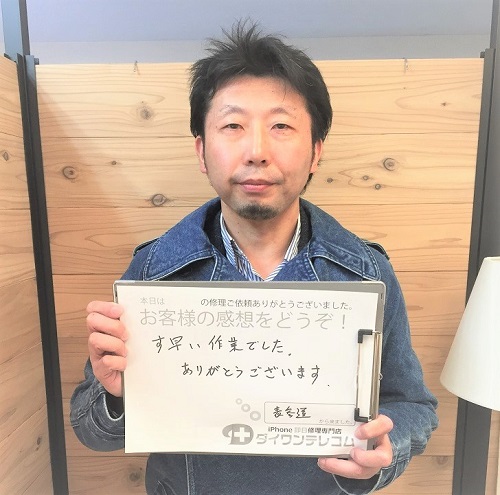 本日は の修理ご依頼ありがとうございました。
お客様の感想をどうぞ!
す早い作業でした。
ありがとうございます。
表参道
から来ました。
iPhone即日修理専門店
ダイワンテレコム